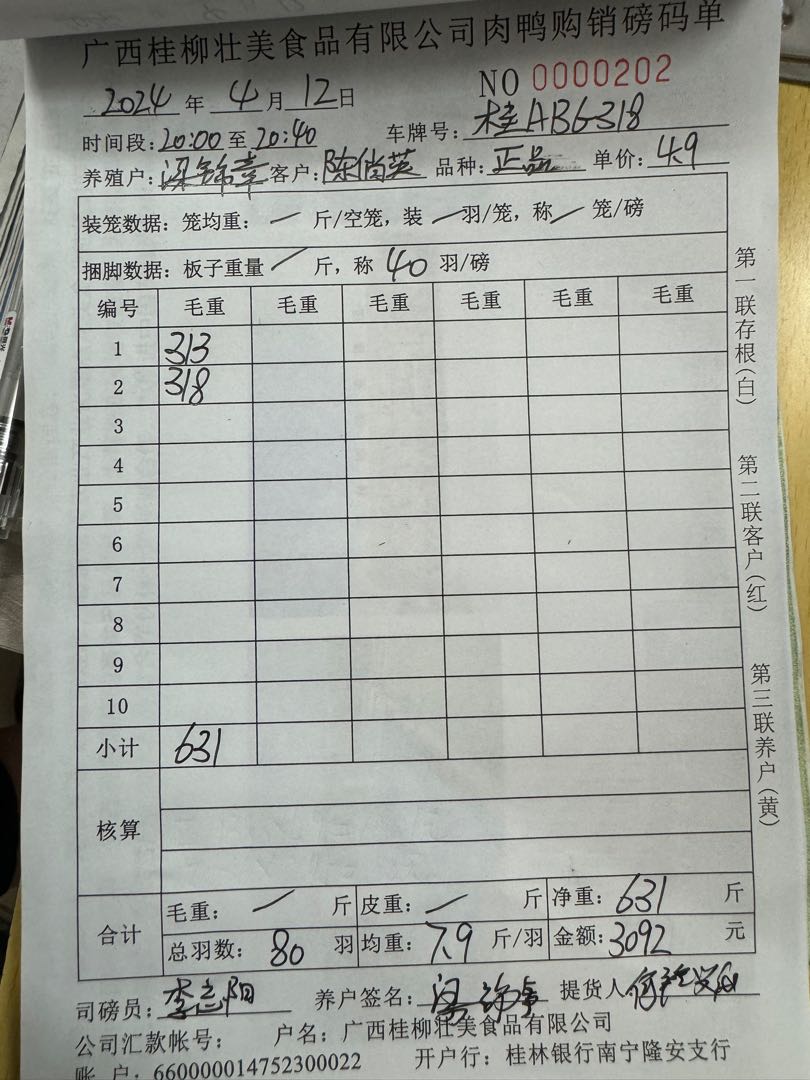 广西桂柳壮美食品有限公司肉鸭购销磅码单
2024年4月12日 NO 0000202
时间段:20:00至20:40 车牌号:桂AB6318
养殖户: 客户:陈俏英 品种:正品 单价:4.9
装笼数据:笼均重:/斤/空笼,装/羽/笼,称/笼/磅
捆脚数据:板子重量/斤,称40羽/磅
编号 毛重 毛重 毛重 毛重 毛重 毛重
1 313
2 318
3
4
5
6
7
8
9
10
小计 631
核算
合计 毛重:/斤 皮重:/斤 净重:631斤
总羽数:80羽 均重:7.9斤/羽 金额:3092元
司磅员:李志阳 养户签名: 提货人
公司汇款帐号: 户名:广西桂柳壮美食品有限公司
账 户:660000014752300022 开户行:桂林银行南宁隆安支行
第一联存根(白)
第二联客户(红)
第三联养户(黄)